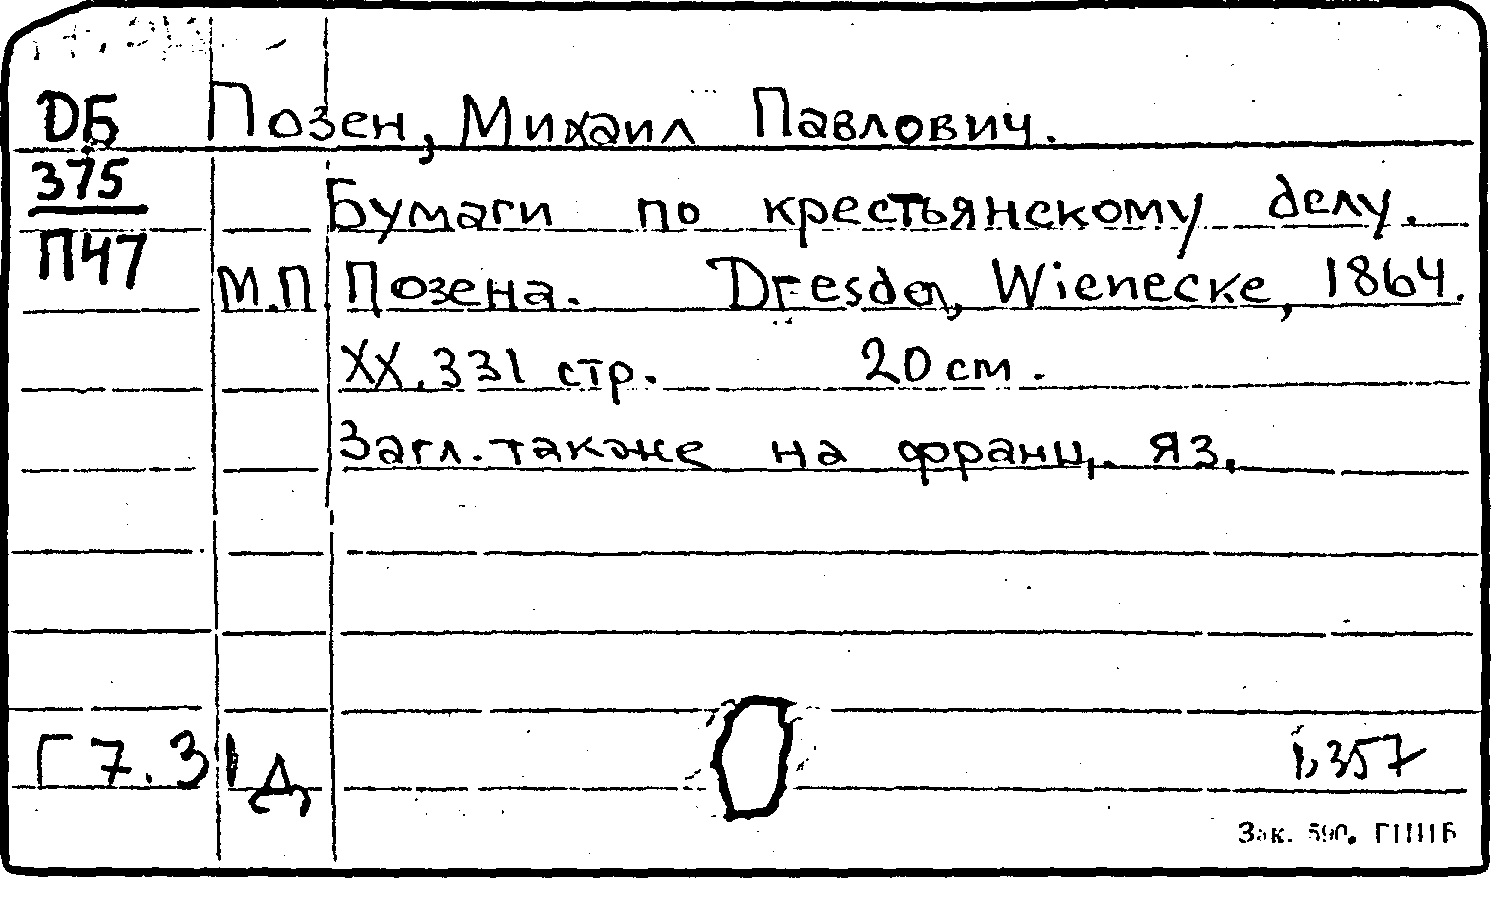 ДБ Позен, Михаил Павлович.
375 Бумаги по крестьянскому делу.
П47 М.П Позена. Dresden, Wienecke, 1864.
XX, 331 стр. 20 см.
Загл. также на франц. яз.
Г 7.31 Д
Зак. 590. ГППБ